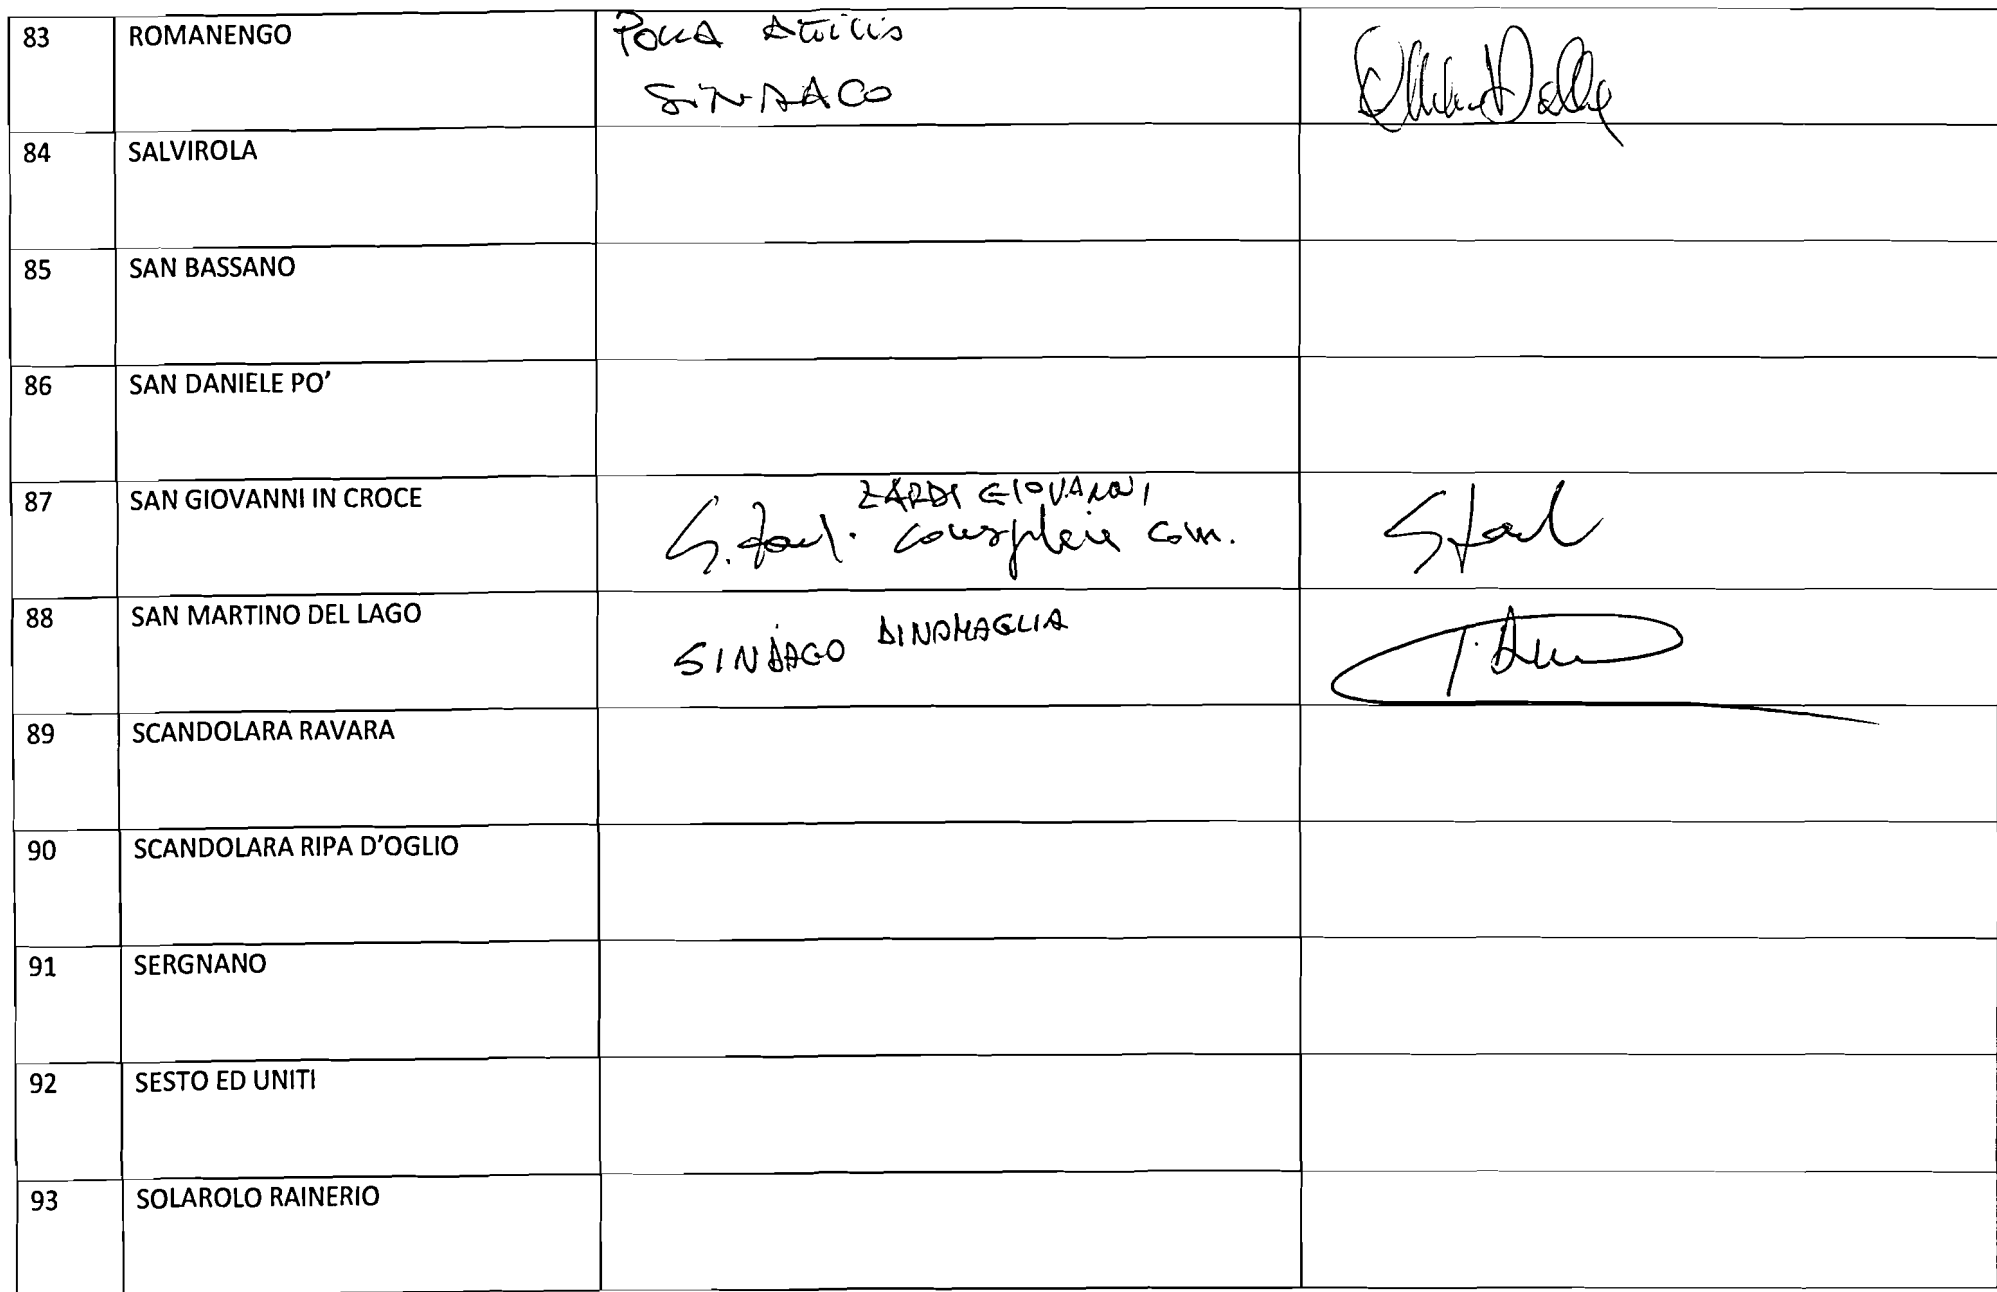 83 ROMANENGO POLLA Attilio
SINDACO
84 SALVIROLA
85 SAN BASSANO
86 SAN DANIELE PO’
87 SAN GIOVANNI IN CROCE ZARDI GIOVANNI
com.
88 SAN MARTINO DEL LAGO SINDACO DINO MAGLIA
89 SCANDOLARA RAVARA
90 SCANDOLARA RIPA D’OGLIO
91 SERGNANO
92 SESTO ED UNITI
93 SOLAROLO RAINERIO